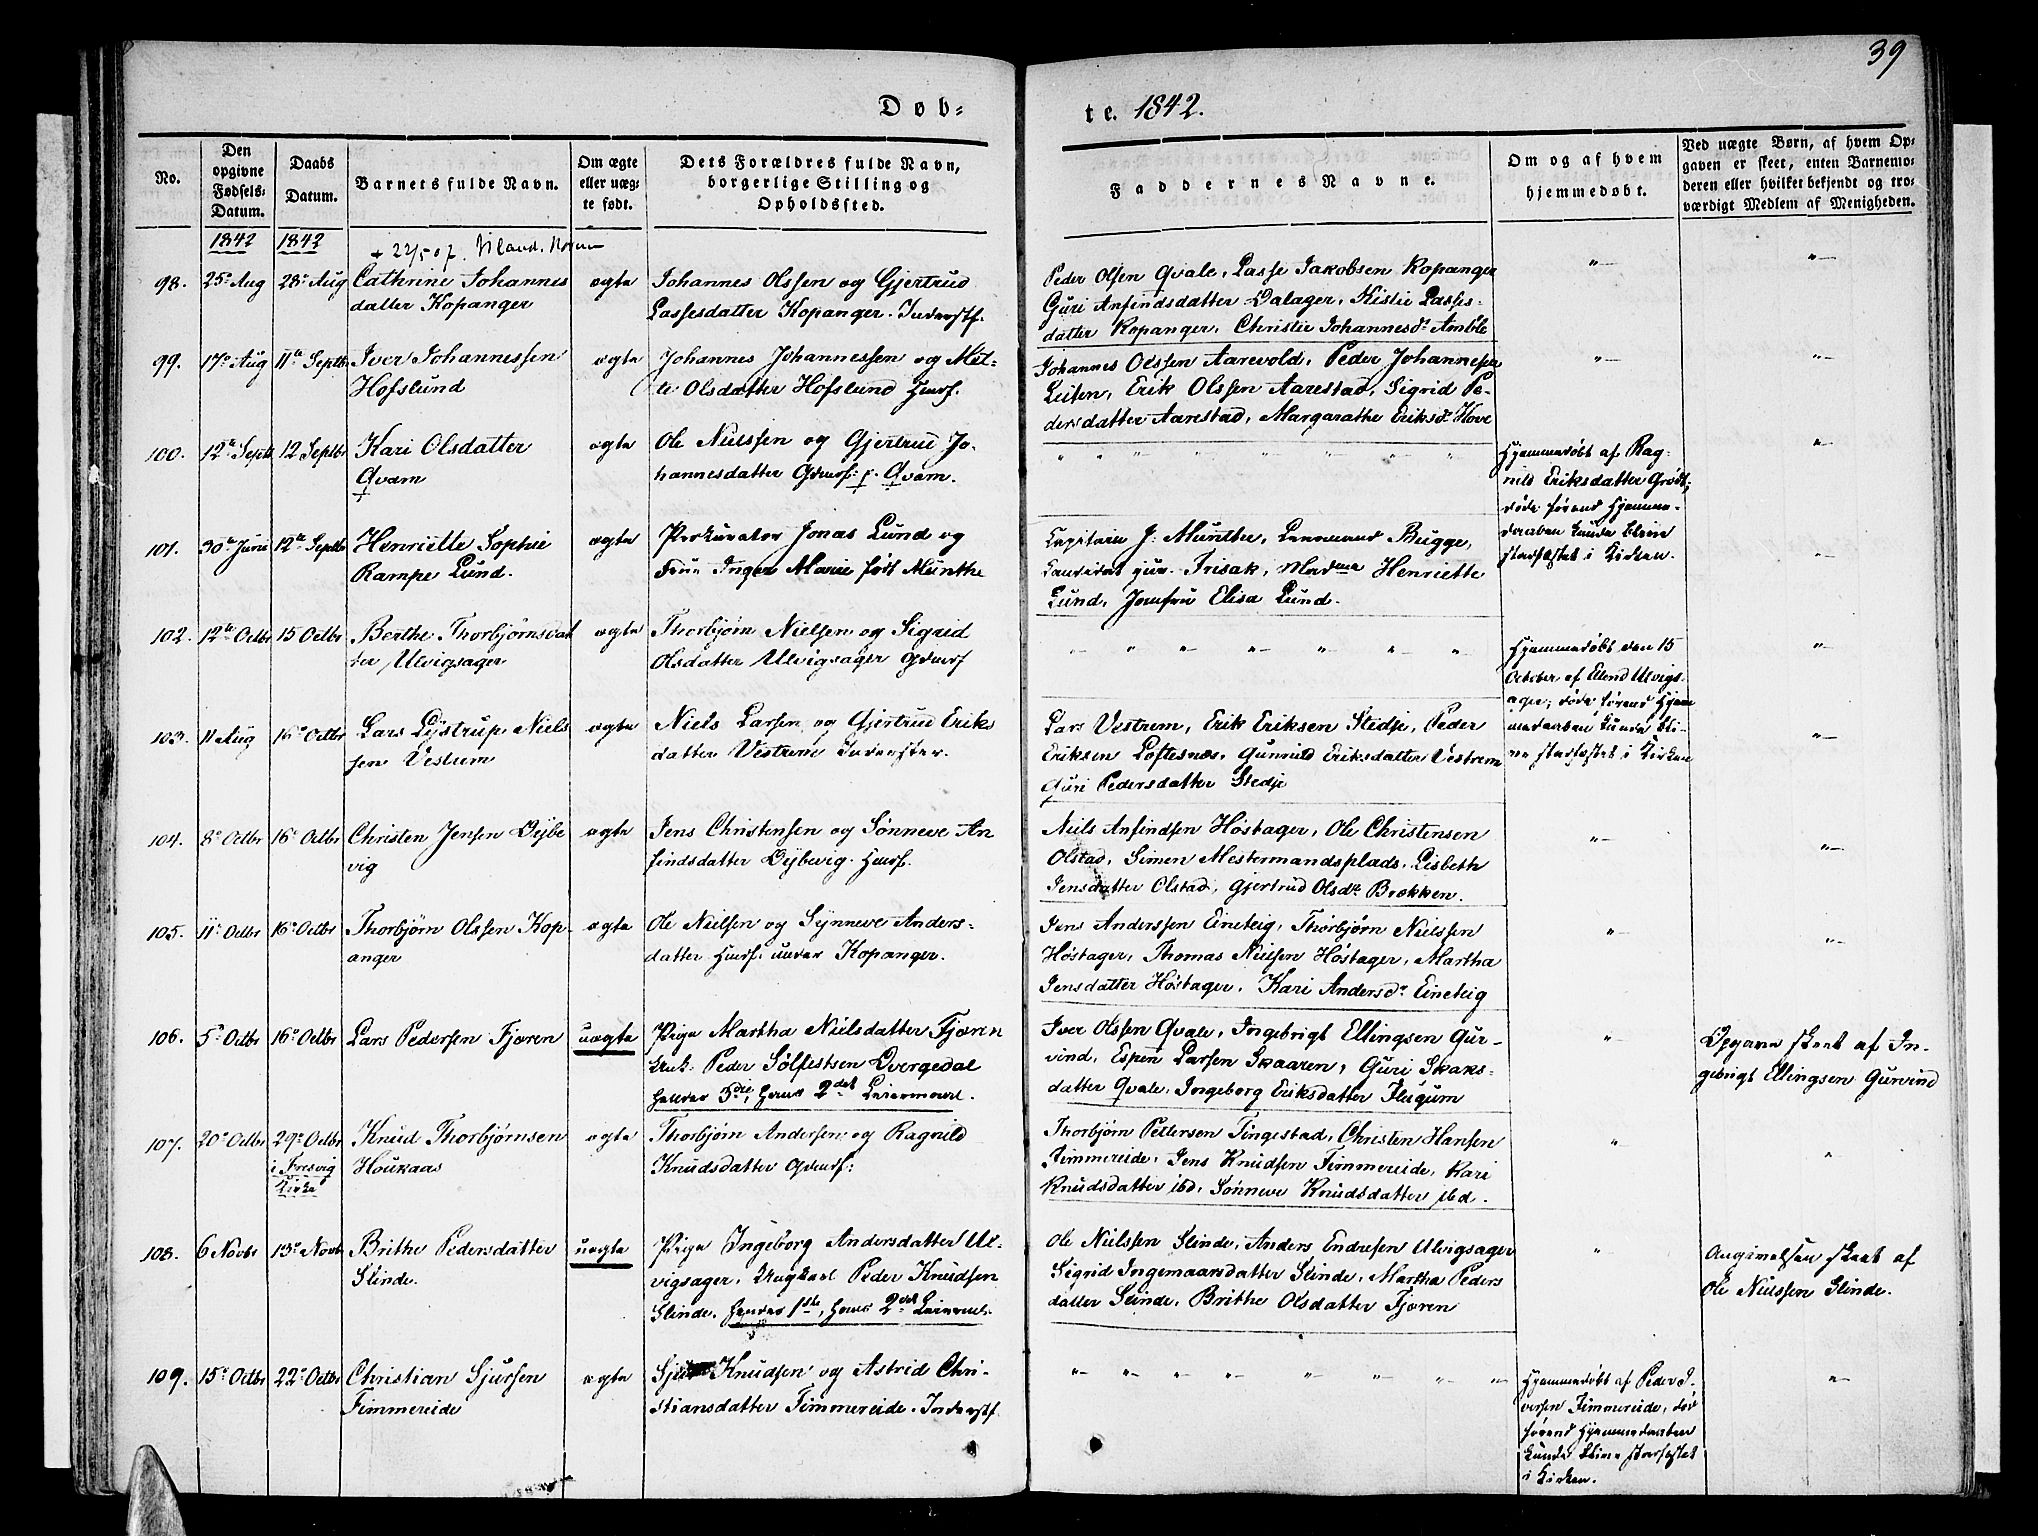 39
Døb-
te. 1842.
No.
Den opgivne Fødsels-Datum.
Daabs Datum.
Barnets fulde Navn.
Om ægte eller uæg-te født.
Dets Forældres fulde Navn, borgerlige Stilling og Opholdssted.
Faddernes Navne.
Om og af hvem hjemmedøbt.
Ved uægte Børn, af hvem Op-gaven er skeet, enten Barnemo-deren eller hvilket bekjendt og tro-værdigt Medlem af Menigheden.
1842
1842
98. 25de Aug 28de Aug
Cathrine Johannes
datter Kopanger
ægte
Johannes Olssen og Gjertrud
Lassesdatter Kopanger. Inderstf.
Peder Olsen Qvale, Lasse Jakobsen Kopanger
Guri Anfindsdatter Dalager, Kistie Lasses-
datter Kopanger, Christie Johannesdr Amble
99. 17de Aug 11te Septbr
Iver Johannessen
Hofslund
ægte
Johannes Johannessen og Met-
te Olsdatter Hofslund Huusf.
Johannes Olssen Aarevold, Peder Johannesen
Leiten, Erik Olssen Aarestad, Sigrid Pe-
dersdatter Aarestad, Margarathe Eriksdr Hove
100. 12te Septb 12 Septbr
Kari Olsdatter
Qvam
ægte
Ole Nielssen og Gjertrud Jo-
hannesdatter Gdmdf: p. Qvam.
Hjemmedøbt af Rag-
nild Eriksdatter Grødt;
døde førend Hjemme-
daaben kunde blive
stadfæstet i Kirken.
101. 30te Juni 12te Septbr
Henriette Sophie
Rampe Lund.
ægte
Prokurator Jonas Lund og
Frue Inger Marie født Münthe
Capitain J. Munthe, Lensmand Bugge,
Candidat jur. Frisak, Madme Henriette
Lund, Jomfru Elisa Lund.
102. 12te Octbr 15 Octbr
Berthe Thorbjørnsdat
ter Ulvigsager
ægte
Thorbjørn Nielsen og Sigrid
Olsdatter Ulvigsager Gdmdf
Hjemmedøbt den 15
October af Erlend Ulvigs-
ager; døde førend Hjem
medaaben kunde bli-
ve stadfæstet i Kirken
103. 11 Aug 16de Octbr
Lars Lystrup Niels
sen Vestum
ægte
Niels Larsen og Gjertrud Eriks
datter Vestrem Inderster.
Lars Vestrem, Erik Eriksen Stedje, Peder
Eriksen Loftesnæs, Gunnild Eriksdatter Vestrem
Guri Pedersdatter Stedje
104. 8de Octbr 16de Octbr
Christen Jensen Dejbe
vig
ægte
Jens Christensen og Sønneve An
findsdatter Dejbevig. Huusf.
Niels Anfindsen Høstager, Ole Christensen
Olstad, Simen Mestermandsplads, Lisbeth
Jensdatter Olstad, Gjertrud Olsdr Brækken.
105. 11te Octbr 16de Octbr
Thorbjørn Olssen Kop-
anger
ægte
Ole Nielsen og Synneve Anders-
datter Huusf. under Kopanger.
Jens Anderssen Eineteig, Thorbjørn Nielssen
Høstager, Thomas Nielsen Høstager, Martha
Jensdatter Høstager, Kari Andersdr Eineteig
106. 5te Octbr 16de Octbr
Lars Pedersen Fjæren
uægte
Pige Martha Nielsdatter Fjæren
Unk. Peder Sølfestsen Dvergedal
hendes 3die, hans 2det Leiermaal.
Iver Olssen Qvale, Ingebrigt Ellingsen Gur-
vind, Espen Larsen Skaaren, Guri Skaks-
datter Qvale, Ingeborg Eriksdatter Flugum
Opgave skeet af In-
gebrigt Ellingsen Gurvind
107. 20de Octbr 29de Octbr
i Fresvig
Kirke
Knud Thorbjørnsen
Houkaas
ægte
Thorbjørn Andersen og Ragnild
Knudsdatter Gdmdf:
Thorbjørn Pettersen Tingestad, Christen Hansen
Fimmereide, Jens Knudsen Fimmereide, Kari
Knudsdatter ibd, Sønneve Knudsdatter ibd.
108. 6 Novbr 13de Novb
Brithe Pedersdatter
Slinde.
uægte
Pige Ingeborg Andersdatter Ul-
vigsager, Ungkarl Peder Knudsen
Slinde, hendes 1ste, hans 2det Leiermaal.
Ole Nielssen Slinde, Anders Endresen Ulvigsager
Sigrid Ingemaarsdatter Slinde, Martha Peders
datter Slinde, Brithe Olsdatter Fjæren
Angivelsen skeet af
Ole Nielssen Slinde.
109. 15de Octbr 22de Octbr
Christian Sjursen
Fimmereide
ægte
Sjur Knudsen og Astrid Chri-
stiansdatter Fimmereide. Inderstf.
Hjemmedøbt af Peder I-
versen Fimmereide, død
førend Hjemmedaaben
kunde blive stadfæstet
i Kirken.